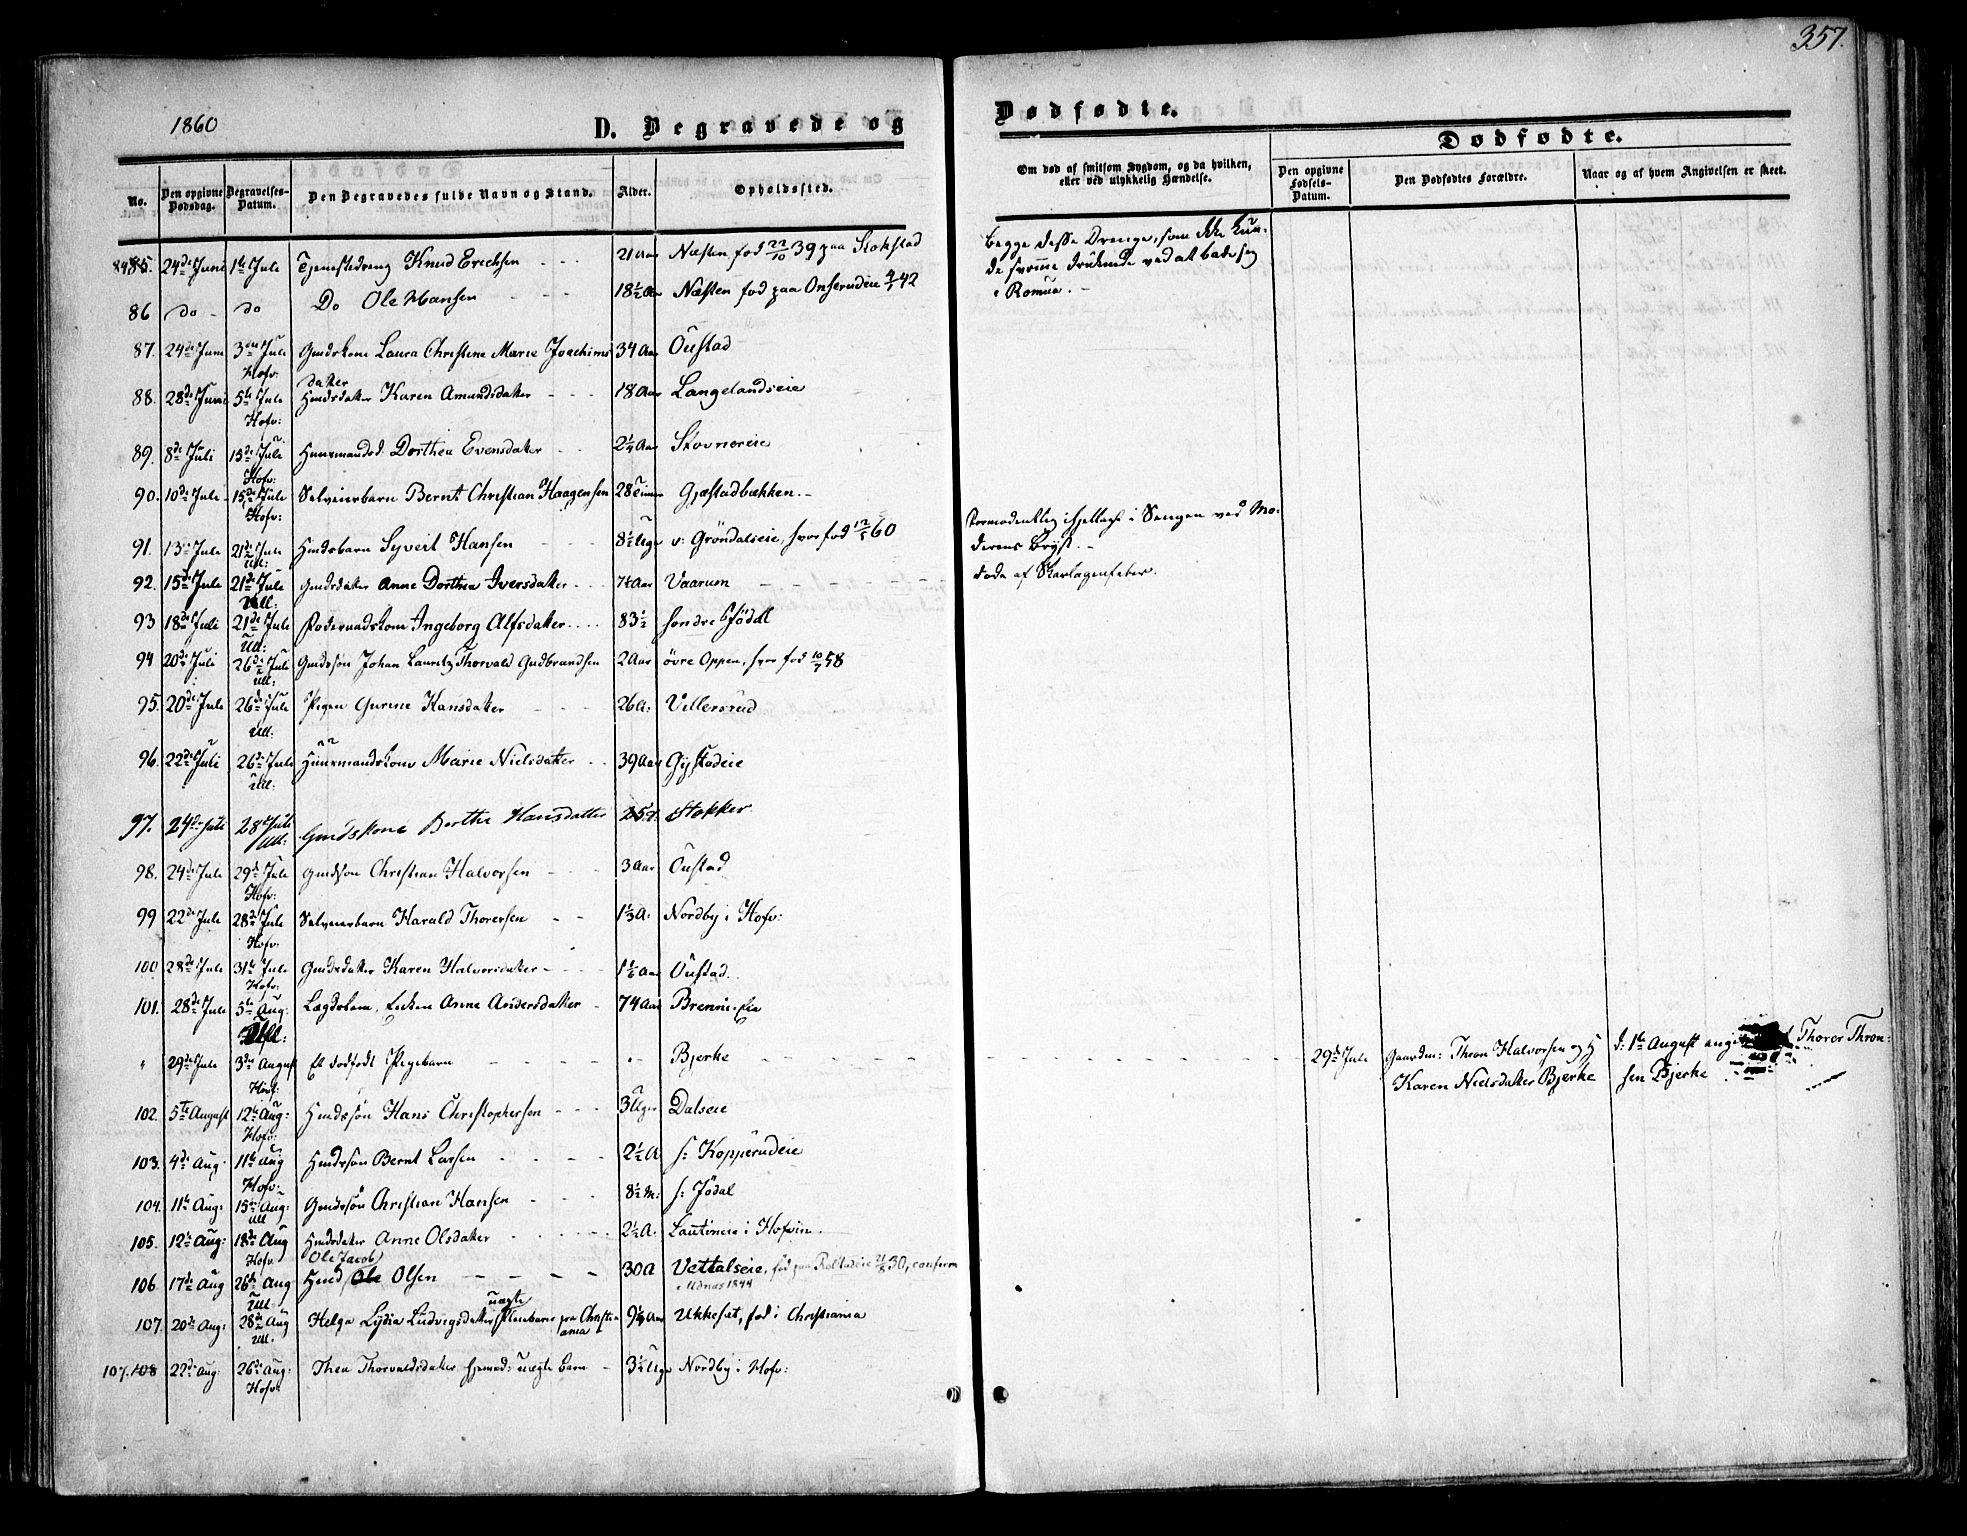 357.
1860
D. Begravede og
Dødfødte.
No.
Den opgivne Dødsdag.
Begravelses-Datum.
Den Begravedes fulde Navn og Stand.
Alder.
Opholdssted.
Om død af smitsom Sygdom, og da hvilken, eller ved ulykkelig Hændelse.
Dødfødte.
Den opgivne Fødsels-Datum.
Den Dødfødtes Forældre.
Naar og af hvem Angivelsen er skeet.
85. 24de Juni 1te Juli Tjenestedreng Knud Erichsen 21 Aar Næsten fød 22/10 39 paa Stokstad
Begge disse Drenge, som ikke kun-
de svømme druknede ved at bade sig
i Romua.
86 do do Do Ole Hansen 18½ Aar Næsten fød paa Onsrudeie 42
87. 24de Juni 3die Juli Hofv: Gmdskone Laura Christine Marie Joachims
datter 34 Aar Oustad
88. 28de Juni 5te Juli Hofv: Hmdsdatter Karen Amundsdatter 18 Aar Langelandseie
89. 8de Juli 15de Juli Hofv: Huusmandsd. Dorthea Evensdatter 2¼ Aar Stovnereie
90. 10de Juli 15de Juli Hofv: Selveierbarn Bernt Christian Haagensen 28 Timer Gjæstadbækken.
91. 13de Juli 21de Juli Ull: Hmdsbarn Syvert Hansen 8½ Uge v: Gröndalseie, hvor fød 12/5 60
Formodentlig ihjellagt i Sengen ved Mo-
derens Bryst.
92. 15de Juli 21de Juli Ull: Gmdsdatter Anne Dorthea Iversdatter 7¼ Aar Vaarum
Døde af Skarlagensfeber.
93 18de Juli 21de Juli Ull: Ingeborg Alfsdatter 83½ søndre Jödal
94 20de Juli 26de Juli Ull: Gmdssön Johan Lauritz Thorvald Gudbrandsen 2 Aar övre Oppen, hvor fød 10/7 58
95. 20de Juli 26de Juli Ull: Pigen Gurine Hansdatter 26 A: Villersrud
96. 22de Juli 26de Juli Ull: Huusmandskone Marie Nielsdatter 39 Aar Gystadeie
97. 24de Juli 28de Juli Ull: Gmdskone Berthe Hansdatter Stokker
98. 24de Juli 29de Juli Hofv: Gmdssön Christian Halvorsen 3 Aar Oustad
99 22de Juli 28de Juli Hofv: Selveierbarn Harald Thoresen 1⅓ A: Nordby i Hofv:
100 28de Juli 31te Juli Hofv: Gmdsdatter Karen Halvorsdatter 1⅙ Aar Oustad.
101. 28de Juli 5te Aug: Ull: Lægdslem, Enken Anne Andersdatter 74 Aar Brenni-Eie
" 29de Juli 3die August Hofv: Et dødfødt Pigebarn " Bjerke
29de Juli Gaardm: Thron Halvorsen og
Karen Nielsdatter Bjerke
d: 1te August Thoror Thron-
sen Bjerke
102. 5te August 12te Aug: Hofv: Hmdssön Hans Christophersen 3 Uger Dalseie
103. 4de Aug 11te Aug Hofv: Hmdssön Bernt Larsen 2½ A s: Kopperudeie
104. 11te Aug: 15de Aug: Ull Gmdssön Christian Hansen 8½ M: s: Jödal
105. 12te Aug: 18de Aug Hofv. Hmdsdatter Anne Olsdatter 2½ A. Lautineie i Hofvin
106. 17de Aug 26de Aug Ull Hmd Ole Jacob Ole Olsen 30 A Vettalseie, fød paa 30, conferm
i Udnæs 1844
107. 20de Aug: 28de Aug Ull. Helga Lydia Ludvigsdatter uægte Pleiebarn fra Christi-
ania 9½ Aar Ukkestad, fød i Christiania
107. 108 22de Aug: 26de Aug: Hofv: Thea Thorvaldsdatter hjemød: Uægte Barn 3½ Uge Nordby i Hofv: